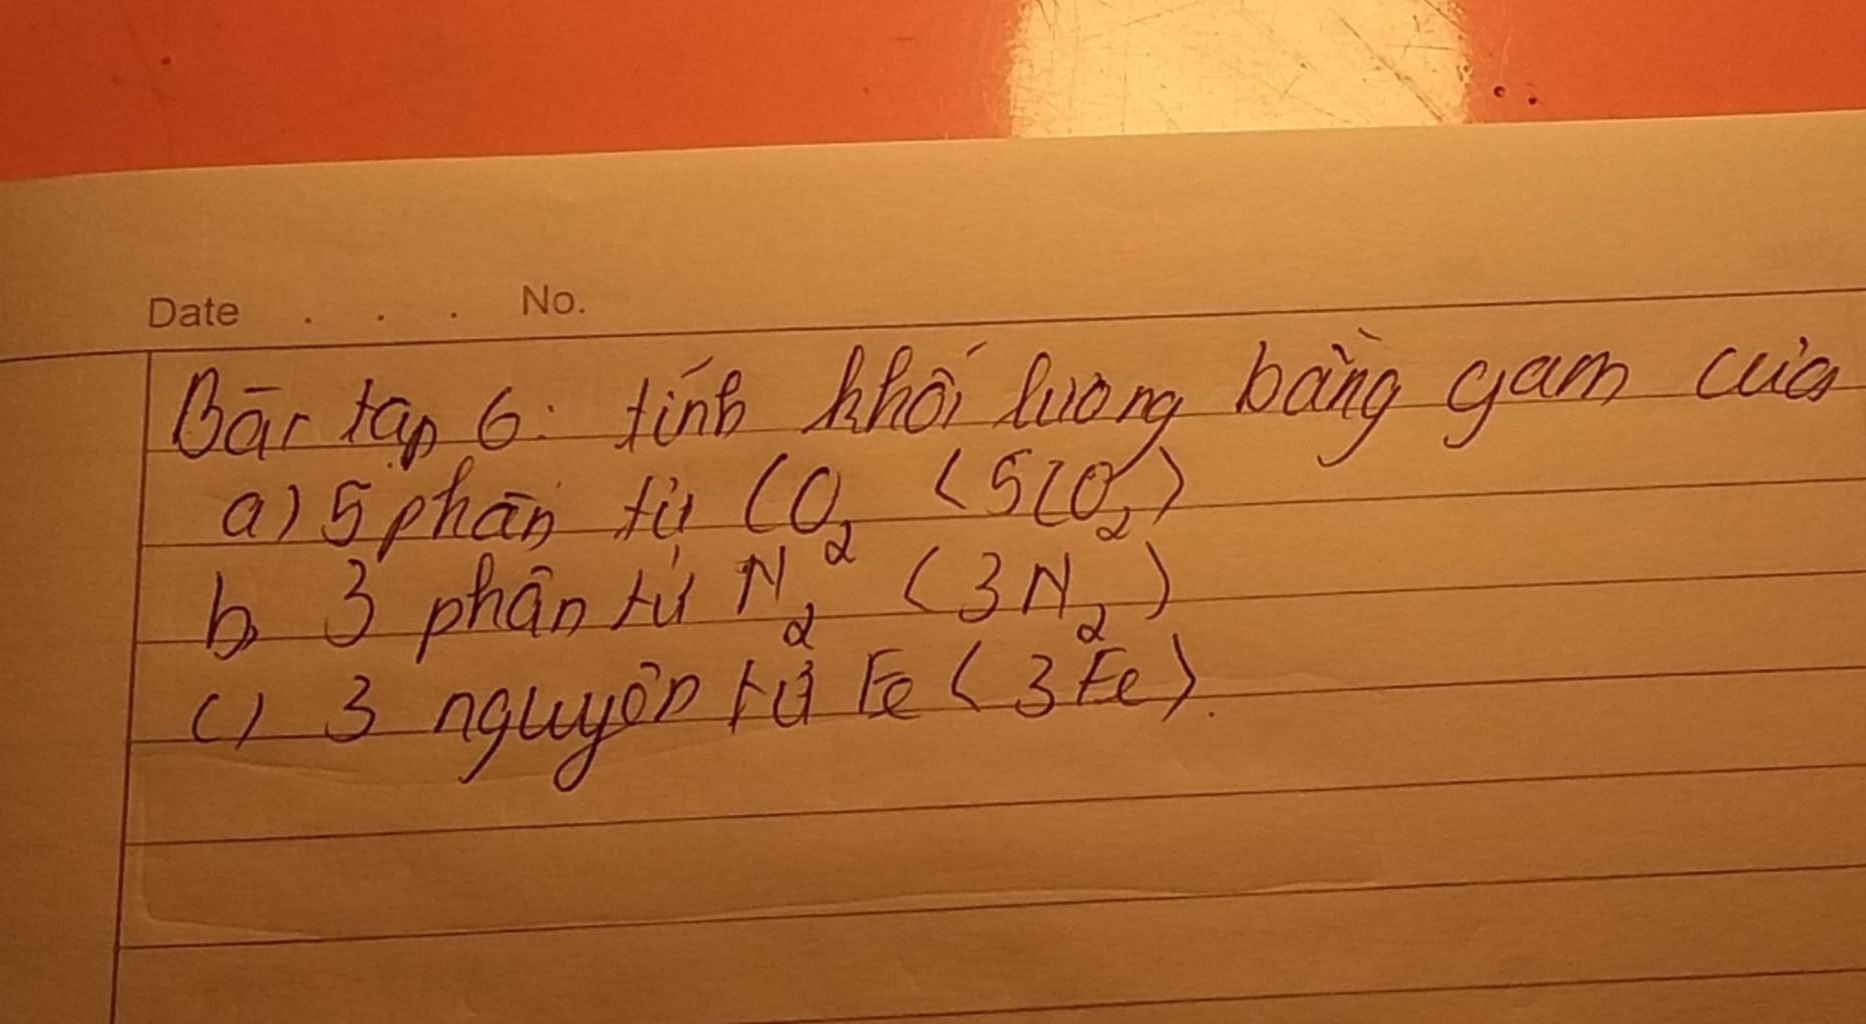 Date . . . No.
Bài tập 6: tính khối lượng bằng gam của
a) 5 phân tử CO2 (5CO2)
b, 3 phân tử N2 (3N2)
c) 3 nguyên tử Fe (3Fe).